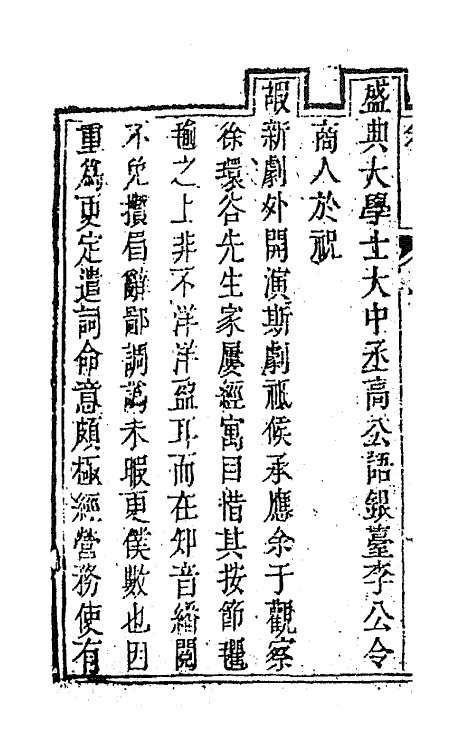 盛典大學士大中丞高公語銀臺李公令
商人於祝
嘏新劇外開演斯劇祗候承應余于觀察
徐環谷先生家屢經寓目惜其按節氍
毹之上非不洋洋盈耳而在知音繙閱
不免攢眉辭鄙調訛未暇更僕數也因
重爲更定遣詞命意頗極經營務使有